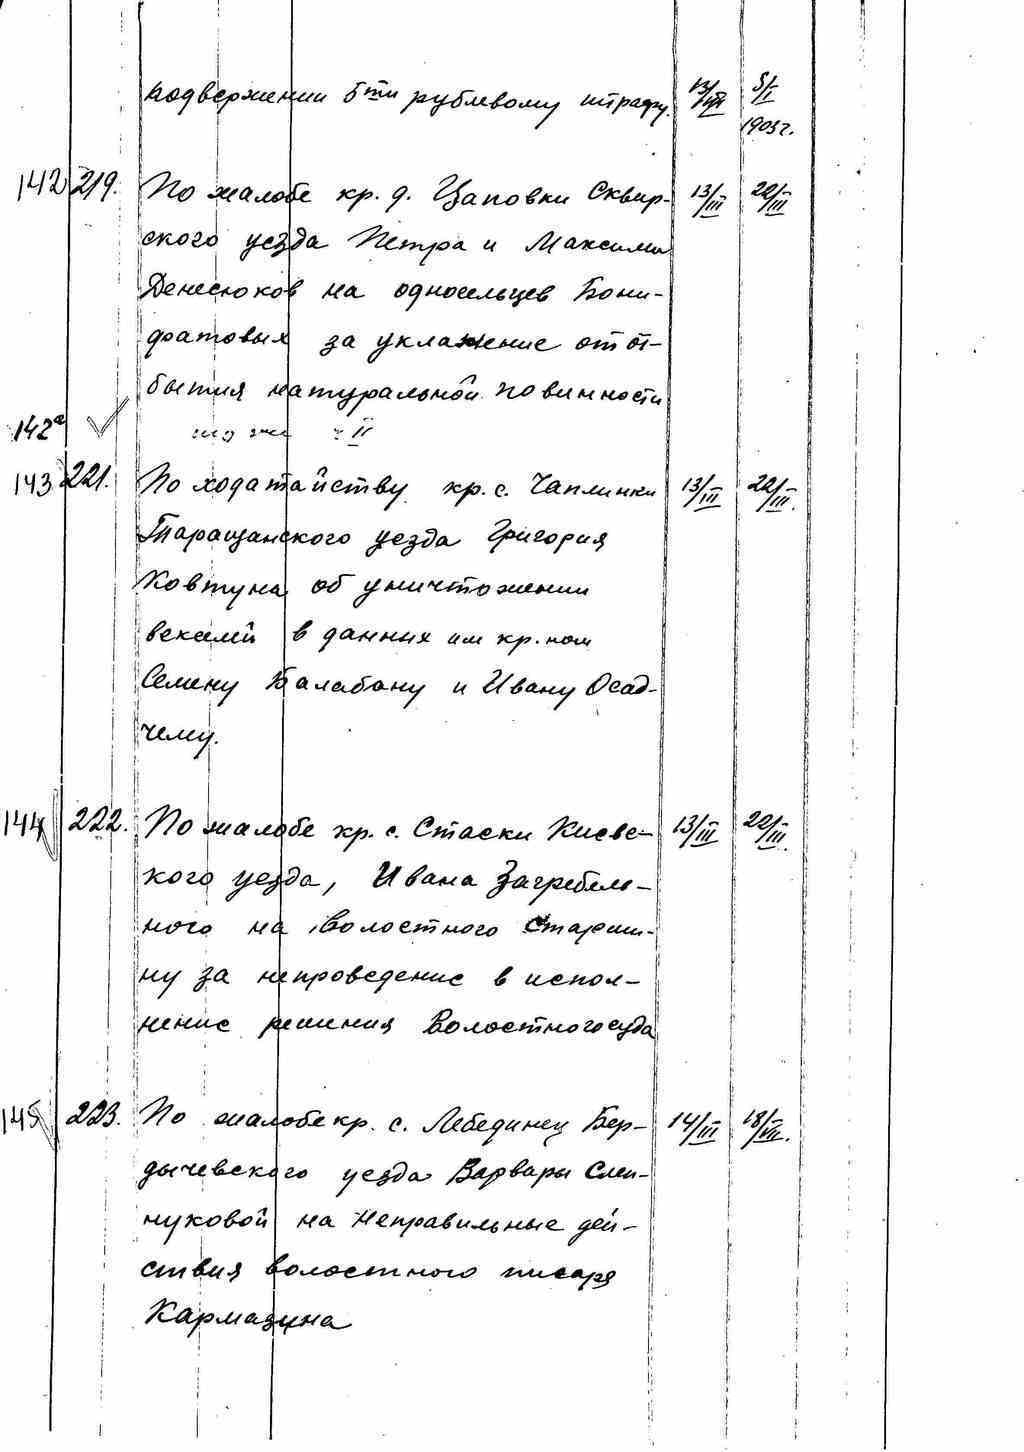 подвержении 5ти рублевому штрафу. 13/III 5/I
1903 г.
142 219. По жалобе кр. д. Цаповки Сквир- 13/III 22/III
ского уезда Петра и Максима
Денесюков на односельцев Бони-
фатовых за уклонение от от-
бытия натуральной повинности
142а то же II
143 221. По ходатайству кр. с. Чаплинки 13/III 22/III.
Таращанского уезда Григория
Ковтуна об уничтожении
векселей в данных им кр.
Семену Балабану и Ивану Осад-
чему.
144 222. По жалобе кр. с. Стаски Киевс- 13/III 22/III.
кого уезда, Ивана Загребель-
ного на волостного старши-
ну за непроведение в испол-
нение решения Волостного суда
145 223. По жалобе кр. с. Лебединец Бер- 14/III 18/VII.
дычевского уезда Варвары
нуковой на неправильные дей-
ствия волостного писаря
Кармазина